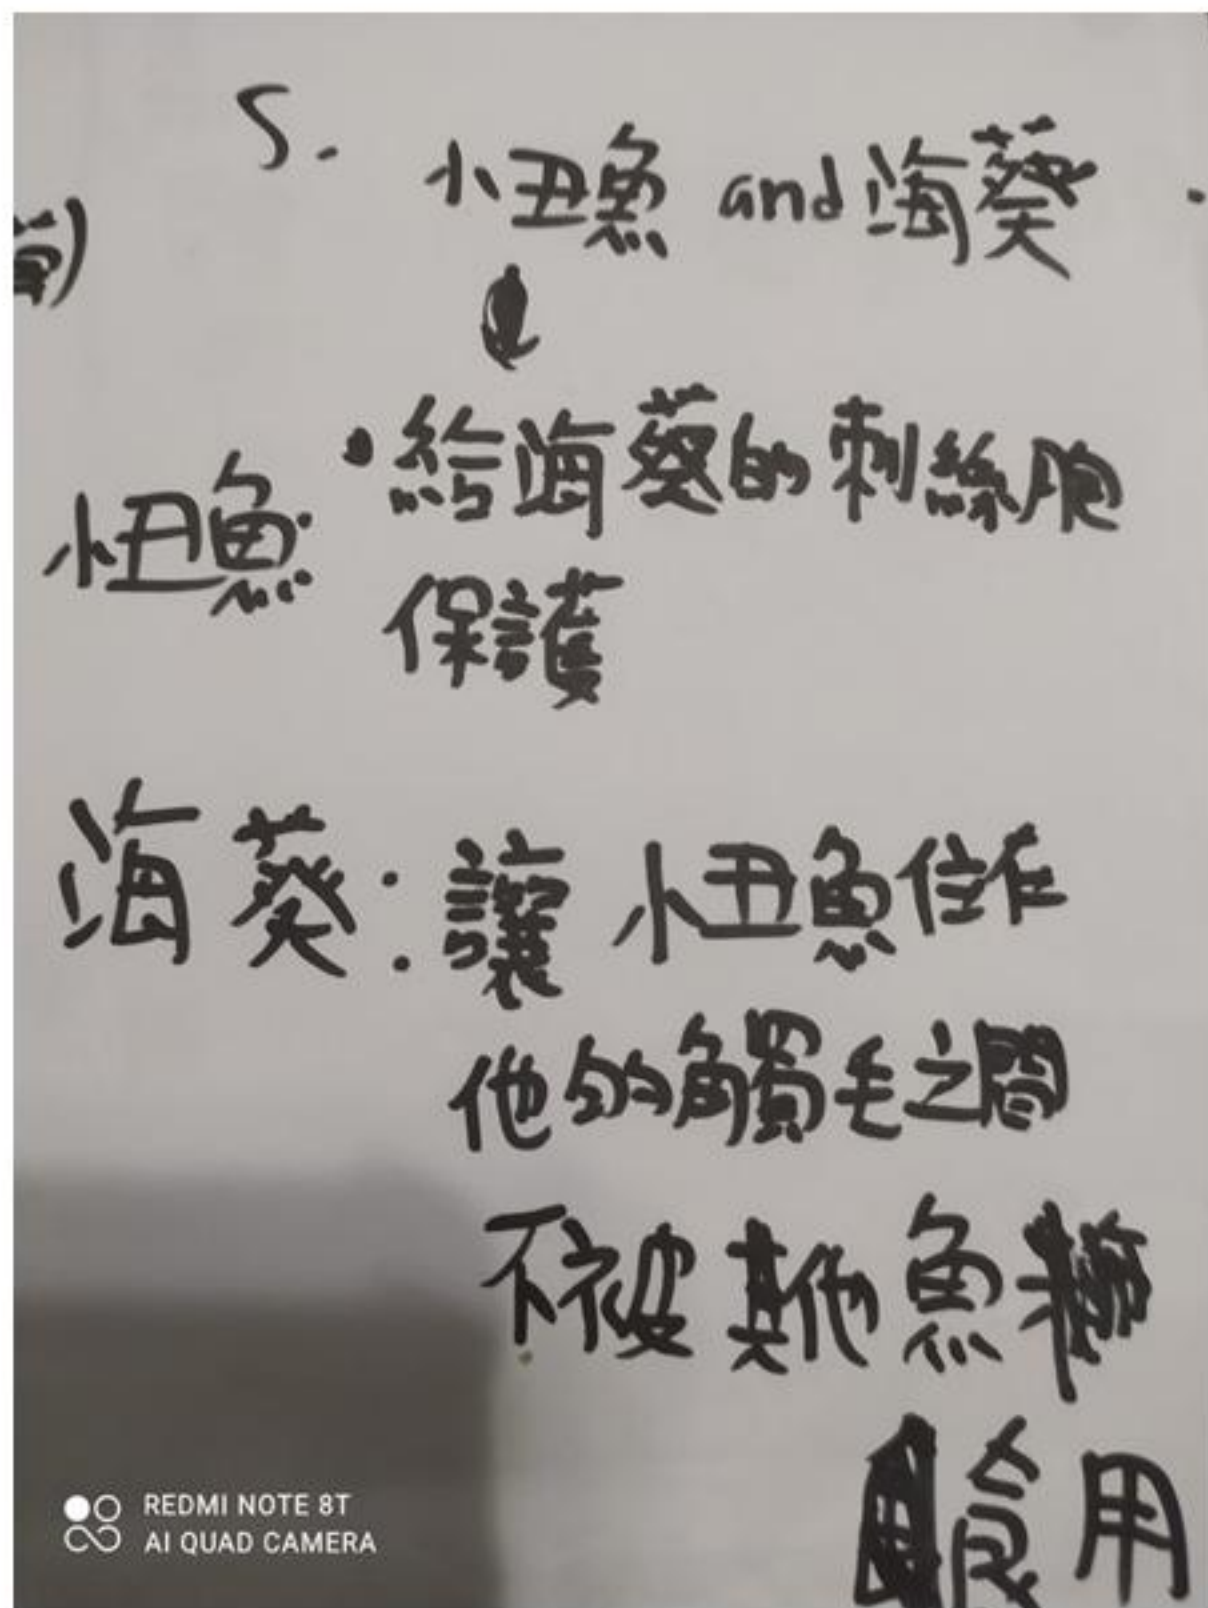 5.
小丑魚 and 海葵
小丑魚 • 給海葵的刺絲胞
保護
海葵: 讓小丑魚住在
他的觸毛之間
不被其他魚種
食用
REDMI NOTE 8T
AI QUAD CAMERA